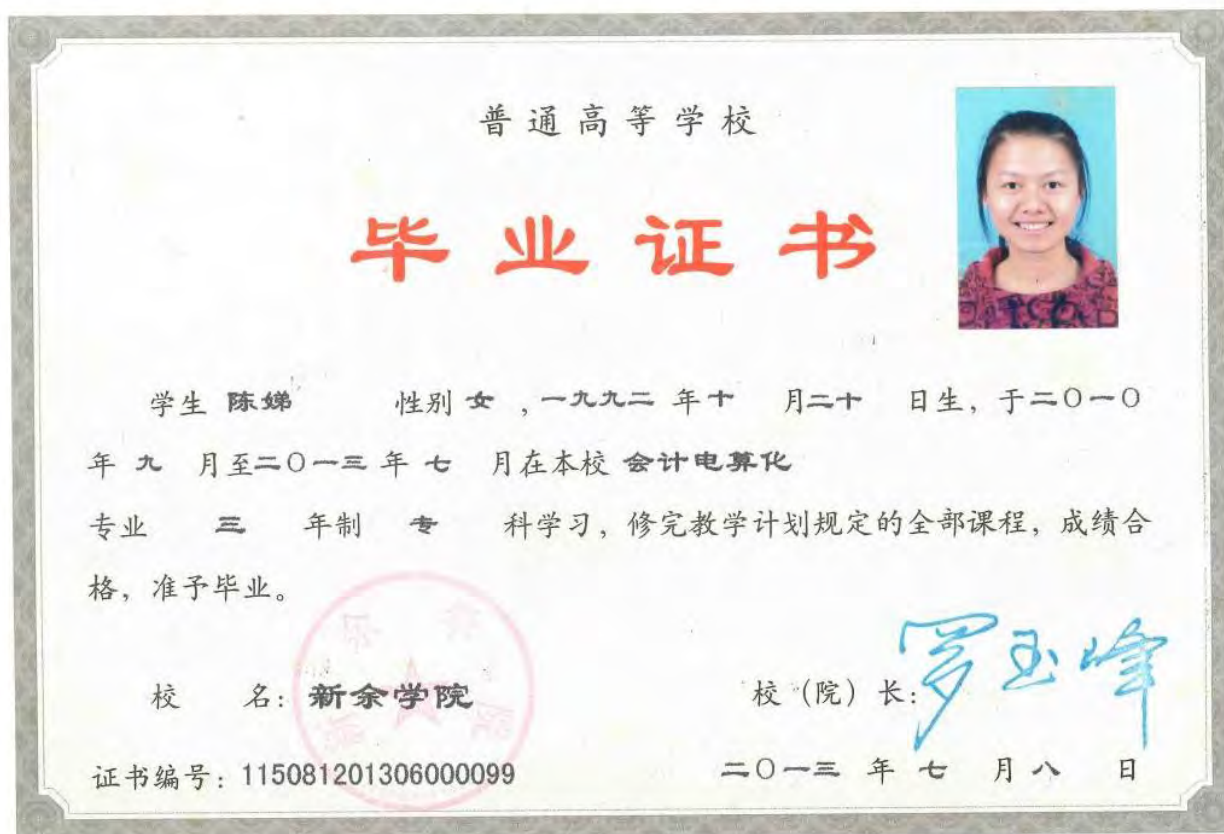 普通高等学校
毕业证书
学生 陈娣 性别 女 ,一九九二 年十 月二十 日生, 于二〇一〇
年 九 月至二〇一三 年 七 月在本校 会计电算化
专业 三 年制 专 科学习, 修完教学计划规定的全部课程, 成绩合
格, 准予毕业。
校 名: 新余学院
校 (院) 长: 罗玉峰
证书编号: 115081201306000099
二〇一三 年 七 月八 日